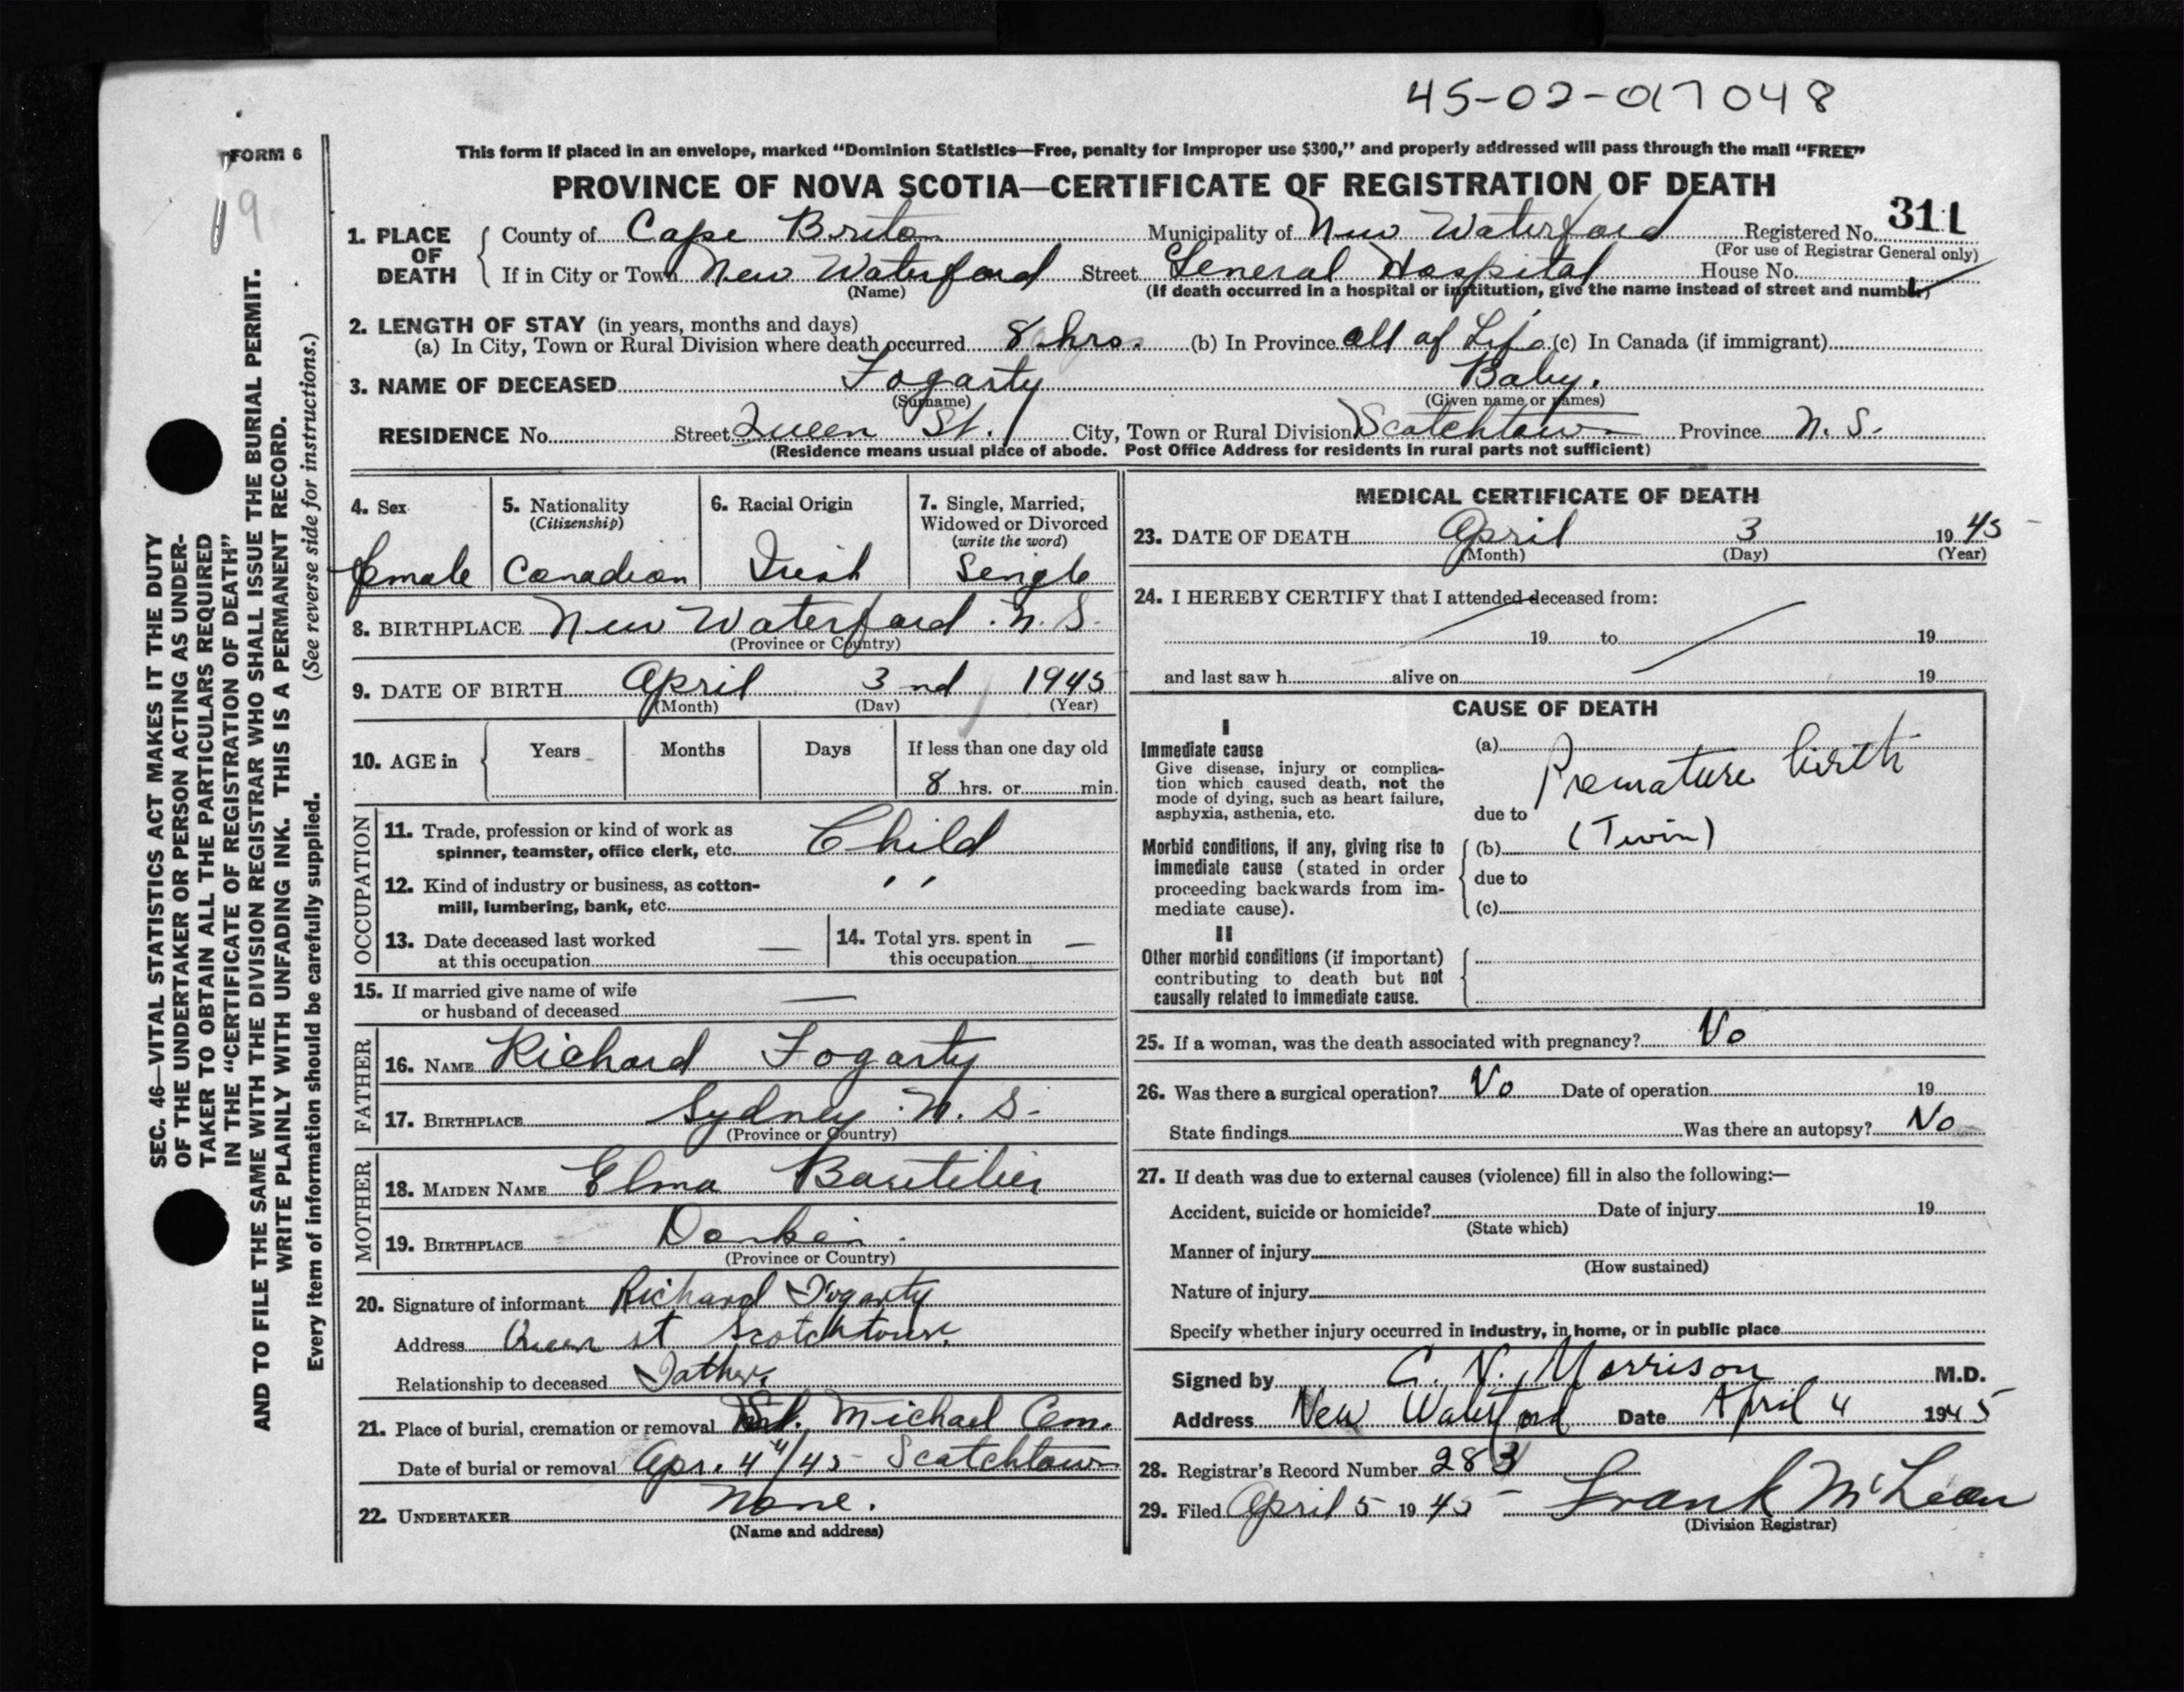 45-02-017048
FORM 6
19
This form if placed in an envelope, marked "Dominion Statistics—Free, penalty for improper use $300," and properly addressed will pass through the mail "FREE"
PROVINCE OF NOVA SCOTIA—CERTIFICATE OF REGISTRATION OF DEATH
1. PLACE OF DEATH County of Cape Breton Municipality of New Waterford Registered No. 311
(For use of Registrar General only)
If in City or Town New Waterford Street General Hospital House No.
(Name) (If death occurred in a hospital or institution, give the name instead of street and number)
2. LENGTH OF STAY (in years, months and days)
(a) In City, Town or Rural Division where death occurred 8 hrs. (b) In Province all of Life (c) In Canada (if immigrant)
3. NAME OF DECEASED Fogarty Baby.
(Surname) (Given name or names)
RESIDENCE No. Street Queen St. City, Town or Rural Division Scotchtown Province N. S.
(Residence means usual place of abode. Post Office Address for residents in rural parts not sufficient)
4. Sex 5. Nationality 6. Racial Origin 7. Single, Married,
(Citizenship) Widowed or Divorced
(write the word)
female Canadian Irish Single
8. BIRTHPLACE New Waterford. N. S.
(Province or Country)
9. DATE OF BIRTH April 3nd 1945
(Month) (Day) (Year)
10. AGE in Years Months Days If less than one day old
8 hrs. or min.
OCCUPATION
11. Trade, profession or kind of work as
spinner, teamster, office clerk, etc. Child
12. Kind of industry or business, as cotton-
mill, lumbering, bank, etc. ' '
13. Date deceased last worked
at this occupation —
14. Total yrs. spent in
this occupation —
15. If married give name of wife
or husband of deceased —
FATHER
16. NAME Richard Fogarty
17. BIRTHPLACE Sydney. N. S.
(Province or Country)
MOTHER
18. MAIDEN NAME Elma Boutilier
19. BIRTHPLACE Donkin.
(Province or Country)
20. Signature of informant Richard Fogarty
Address Queen st Scotchtown
Relationship to deceased Father.
21. Place of burial, cremation or removal Michael Cem.
Date of burial or removal Apr. 4/45 Scotchtown
22. UNDERTAKER None.
(Name and address)
MEDICAL CERTIFICATE OF DEATH
23. DATE OF DEATH April 3 1945
(Month) (Day) (Year)
24. I HEREBY CERTIFY that I attended deceased from:
19 to 19
and last saw h alive on 19
CAUSE OF DEATH
I
Immediate cause
Give disease, injury or complica-
tion which caused death, not the
mode of dying, such as heart failure,
asphyxia, asthenia, etc.
(a) Premature birth
due to
Morbid conditions, if any, giving rise to
immediate cause (stated in order
proceeding backwards from im-
mediate cause).
(b) (Twin)
due to
(c)
II
Other morbid conditions (if important)
contributing to death but not
causally related to immediate cause.
25. If a woman, was the death associated with pregnancy? No
26. Was there a surgical operation? No Date of operation 19
State findings Was there an autopsy? No
27. If death was due to external causes (violence) fill in also the following:—
Accident, suicide or homicide? Date of injury 19
(State which)
Manner of injury
(How sustained)
Nature of injury
Specify whether injury occurred in industry, in home, or in public place
Signed by C. N. Morrison M.D.
Address New Waterford Date April 4 1945
28. Registrar's Record Number 283
29. Filed April 5 1945 Frank McLean
(Division Registrar)
SEC. 46—VITAL STATISTICS ACT MAKES IT THE DUTY
OF THE UNDERTAKER OR PERSON ACTING AS UNDER-
TAKER TO OBTAIN ALL THE PARTICULARS REQUIRED
IN THE "CERTIFICATE OF REGISTRATION OF DEATH"
AND TO FILE THE SAME WITH THE DIVISION REGISTRAR WHO SHALL ISSUE THE BURIAL PERMIT.
WRITE PLAINLY WITH UNFADING INK. THIS IS A PERMANENT RECORD.
Every item of information should be carefully supplied. (See reverse side for instructions.)